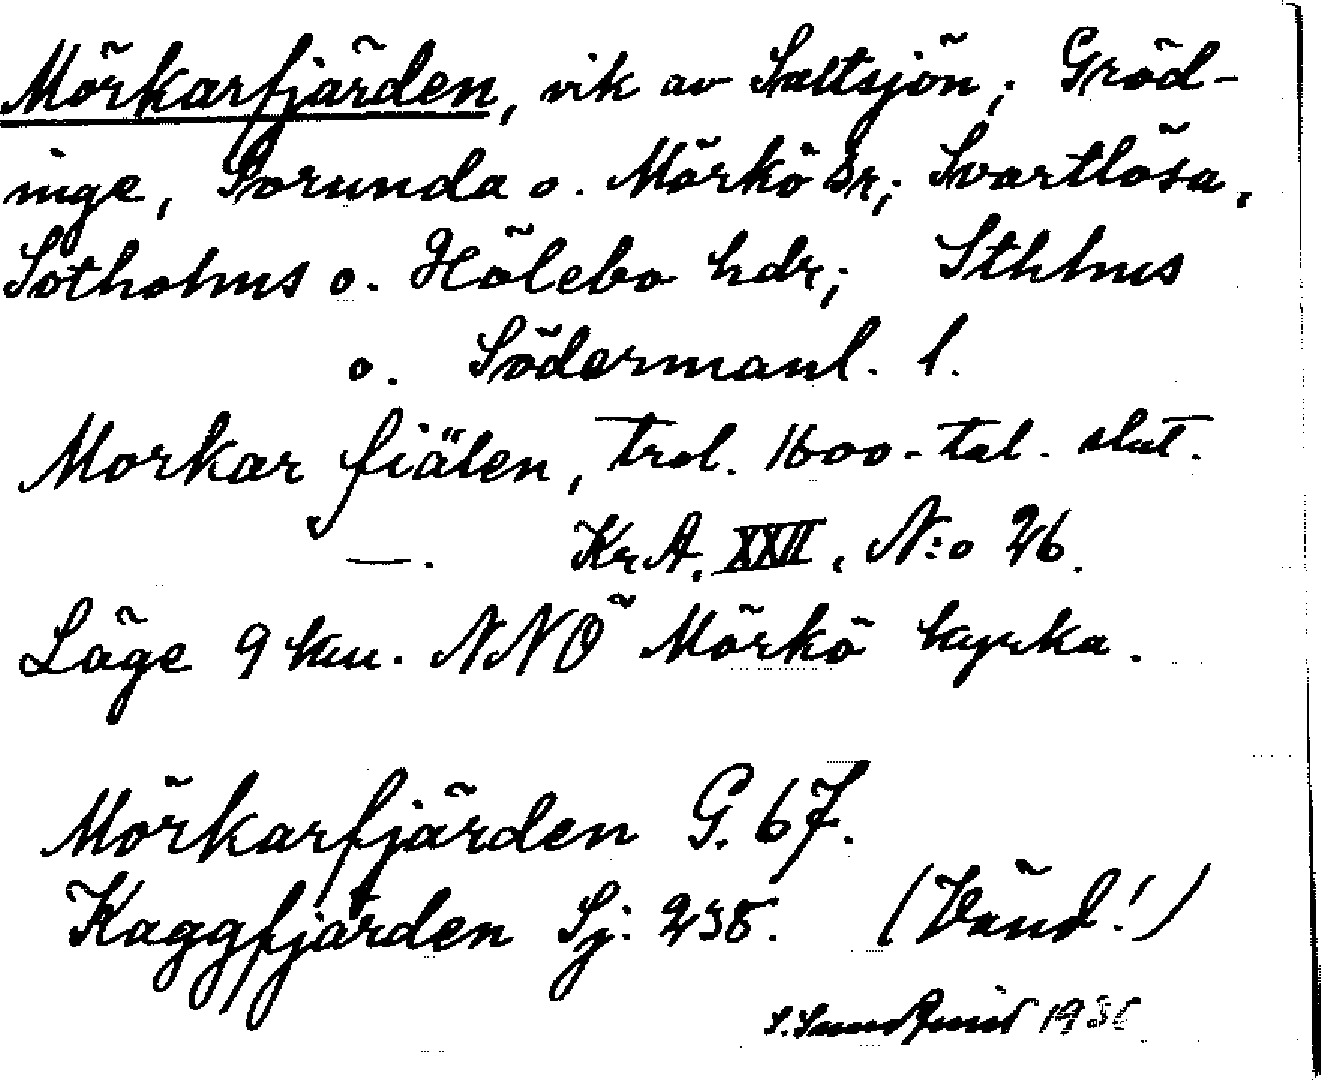 Mörkarfjärden, vik av Saltsjön; Gröd-
inge, Sorunda o. Mörkö snr; Svartlösa,
Sotholms o. Hölebo hdr; Sthlms
o. Södermanl. l.
Morkar fiälen, trol. 1600-tal. slut.
—. KrA. XXII, N:o 26.
Läge 9 km. NNÖ Mörkö kyrka.
Mörkarfjärden G. 67.
Kaggfjärden Sj: 238. (Vänd!)
S. Sundquist